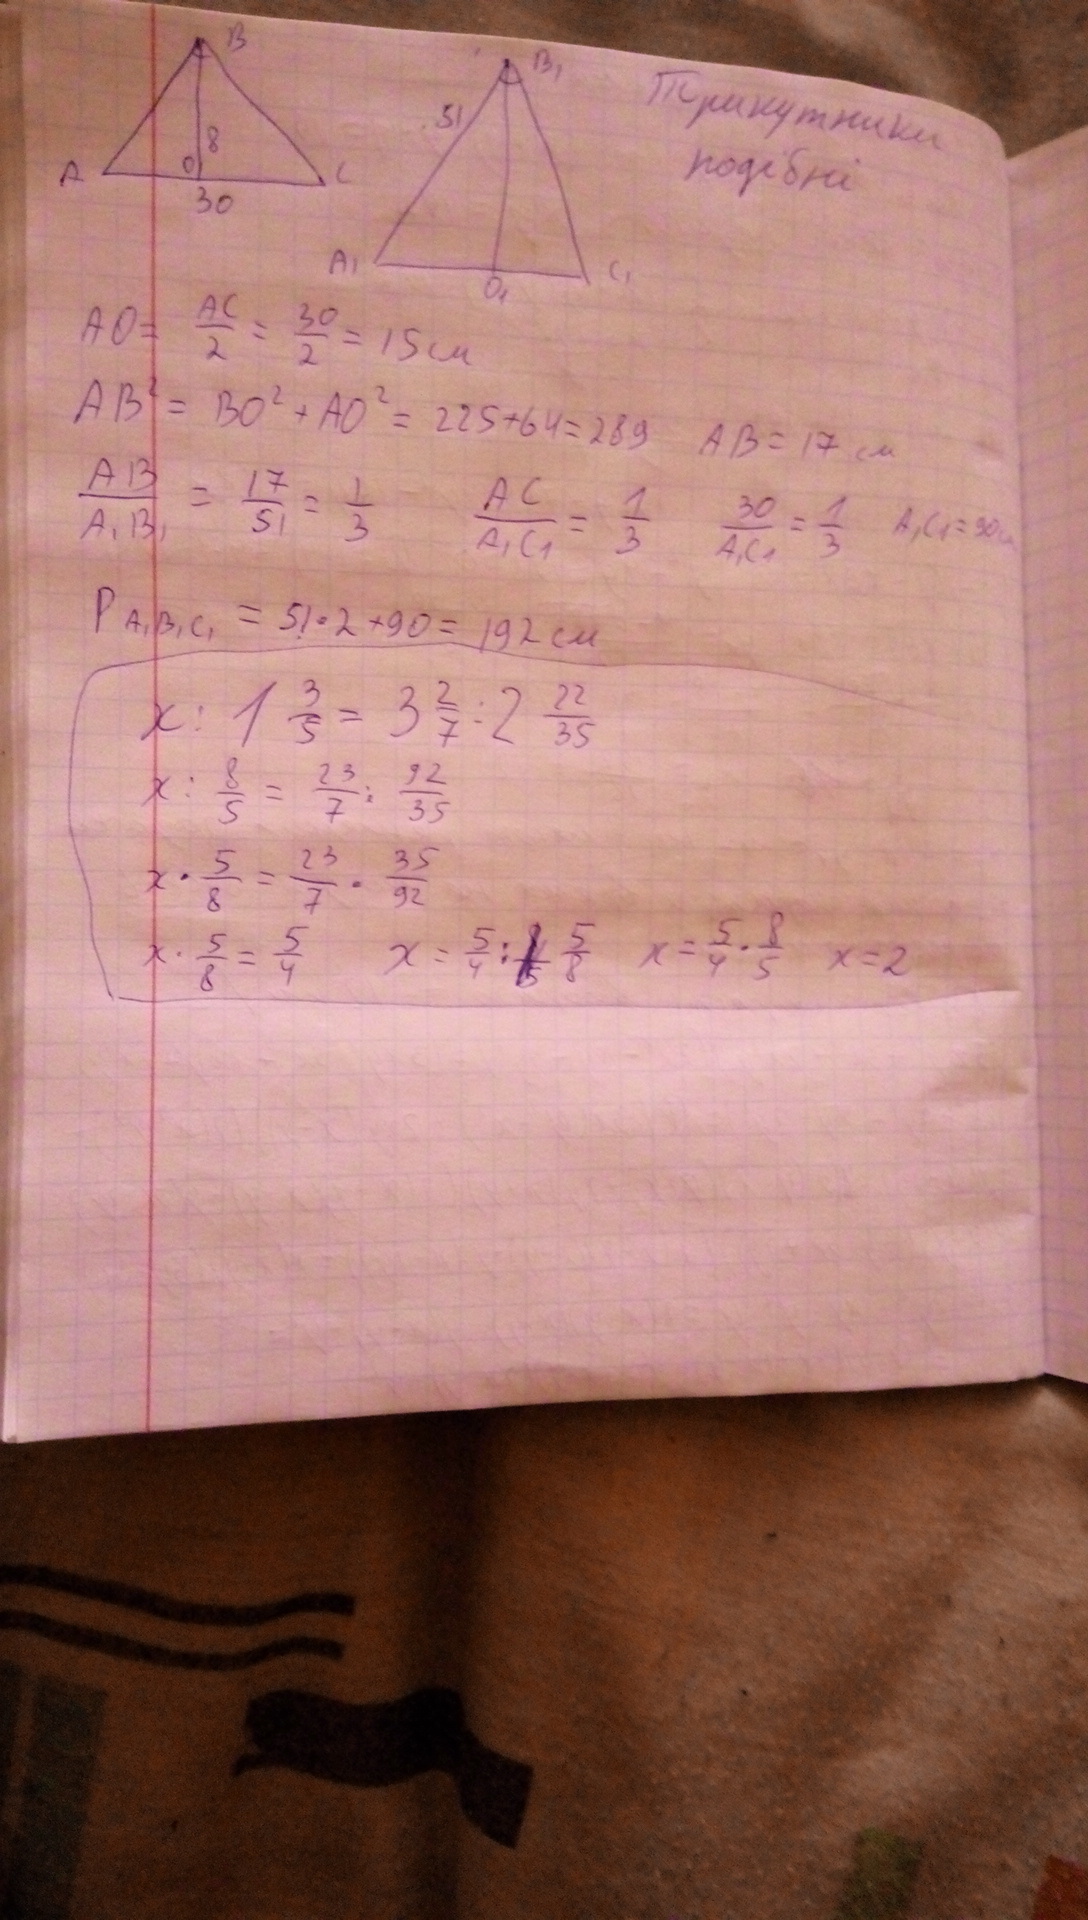 B
8
A O C
30
B₁
51
A₁ O₁ C₁
Трикутники
подібні
AO = AC/2 = 30/2 = 15 см
AB² = BO² + AO² = 225+64=289 AB = 17 см
AB/A₁B₁ = 17/51 = 1/3 AC/A₁C₁ = 1/3 30/A₁C₁ = 1/3 A₁C₁ = 90см
P A₁B₁C₁ = 51·2+90 = 192 см
x : 1 3/5 = 3 2/7 : 2 22/35
x : 8/5 = 23/7 : 92/35
x · 5/8 = 23/7 · 35/92
x · 5/8 = 5/4 x = 5/4 : 5/8 x = 5/4 · 8/5 x = 2